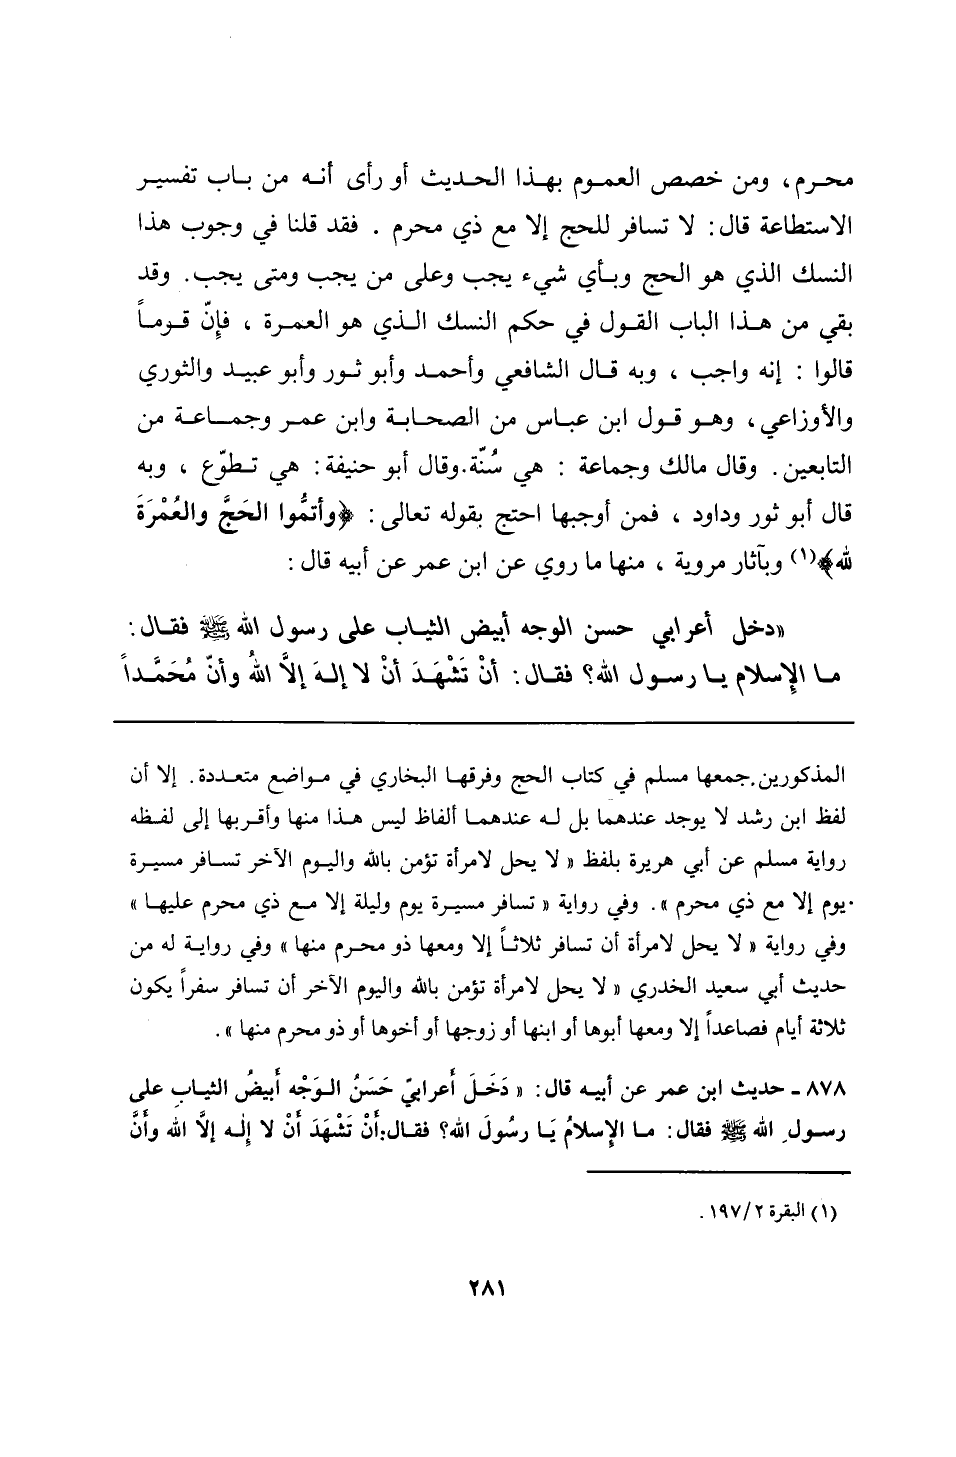 محرم، ومن خصص العموم بهذا الحديث أو رأى أنه من باب تفسير
الاستطاعة قال: لا تسافر للحج إلا مع ذي محرم . فقد قلنا في وجوب هذا
النسك الذي هو الحج وبأي شيء يجب وعلى من يجب ومتى يجب. وقد
بقي من هذا الباب القول في حكم النسك الذي هو العمرة ، فإنّ قوماً
قالوا : إنه واجب ، وبه قال الشافعي وأحمد وأبو ثور وأبو عبيد والثوري
والأوزاعي، وهو قول ابن عباس من الصحابة وابن عمر وجماعة من
التابعين. وقال مالك وجماعة : هي سُنّة.وقال أبو حنيفة: هي تطوّع ، وبه
قال أبو ثور وداود ، فمن أوجبها احتج بقوله تعالى: ﴿وأتمُّوا الحَجَّ والعُمْرَةَ
لله﴾(١) وبآثار مروية ، منها ما روي عن ابن عمر عن أبيه قال :
«دخل أعرابي حسن الوجه أبيض الثياب على رسول الله ﷺ فقال:
ما الإسلام يا رسول الله؟ فقال: أنْ تَشْهَدَ أنْ لا إلهَ إلاَّ اللهُ وأنّ مُحَمَّداً
المذكورين.جمعها مسلم في كتاب الحج وفرقها البخاري في مواضع متعددة. إلا أن
لفظ ابن رشد لا يوجد عندهما بل له عندهما ألفاظ ليس هذا منها وأقربها إلى لفظه
رواية مسلم عن أبي هريرة بلفظ « لا يحل لامرأة تؤمن بالله واليوم الآخر تسافر مسيرة
يوم إلا مع ذي محرم ». وفي رواية « تسافر مسيرة يوم وليلة إلا مع ذي محرم عليها »
وفي رواية « لا يحل لامرأة أن تسافر ثلاثاً إلا ومعها ذو محرم منها » وفي رواية له من
حديث أبي سعيد الخدري « لا يحل لامرأة تؤمن بالله واليوم الآخر أن تسافر سفراً يكون
ثلاثة أيام فصاعداً إلا ومعها أبوها أو ابنها أو زوجها أو أخوها أو ذو محرم منها ».
٨٧٨ - حديث ابن عمر عن أبيه قال: « دَخَلَ أَعرابيّ حَسَنُ الوَجْه أَبيضُ الثيابِ على
رسولِ الله ﷺ فقال: ما الإسلامُ يَا رسُولَ الله؟ فقال:أَنْ تَشْهَدَ أَنْ لا إلٰه إلاَّ الله وأَنَّ
(١) البقرة ١٩٧/٢ .
٢٨١